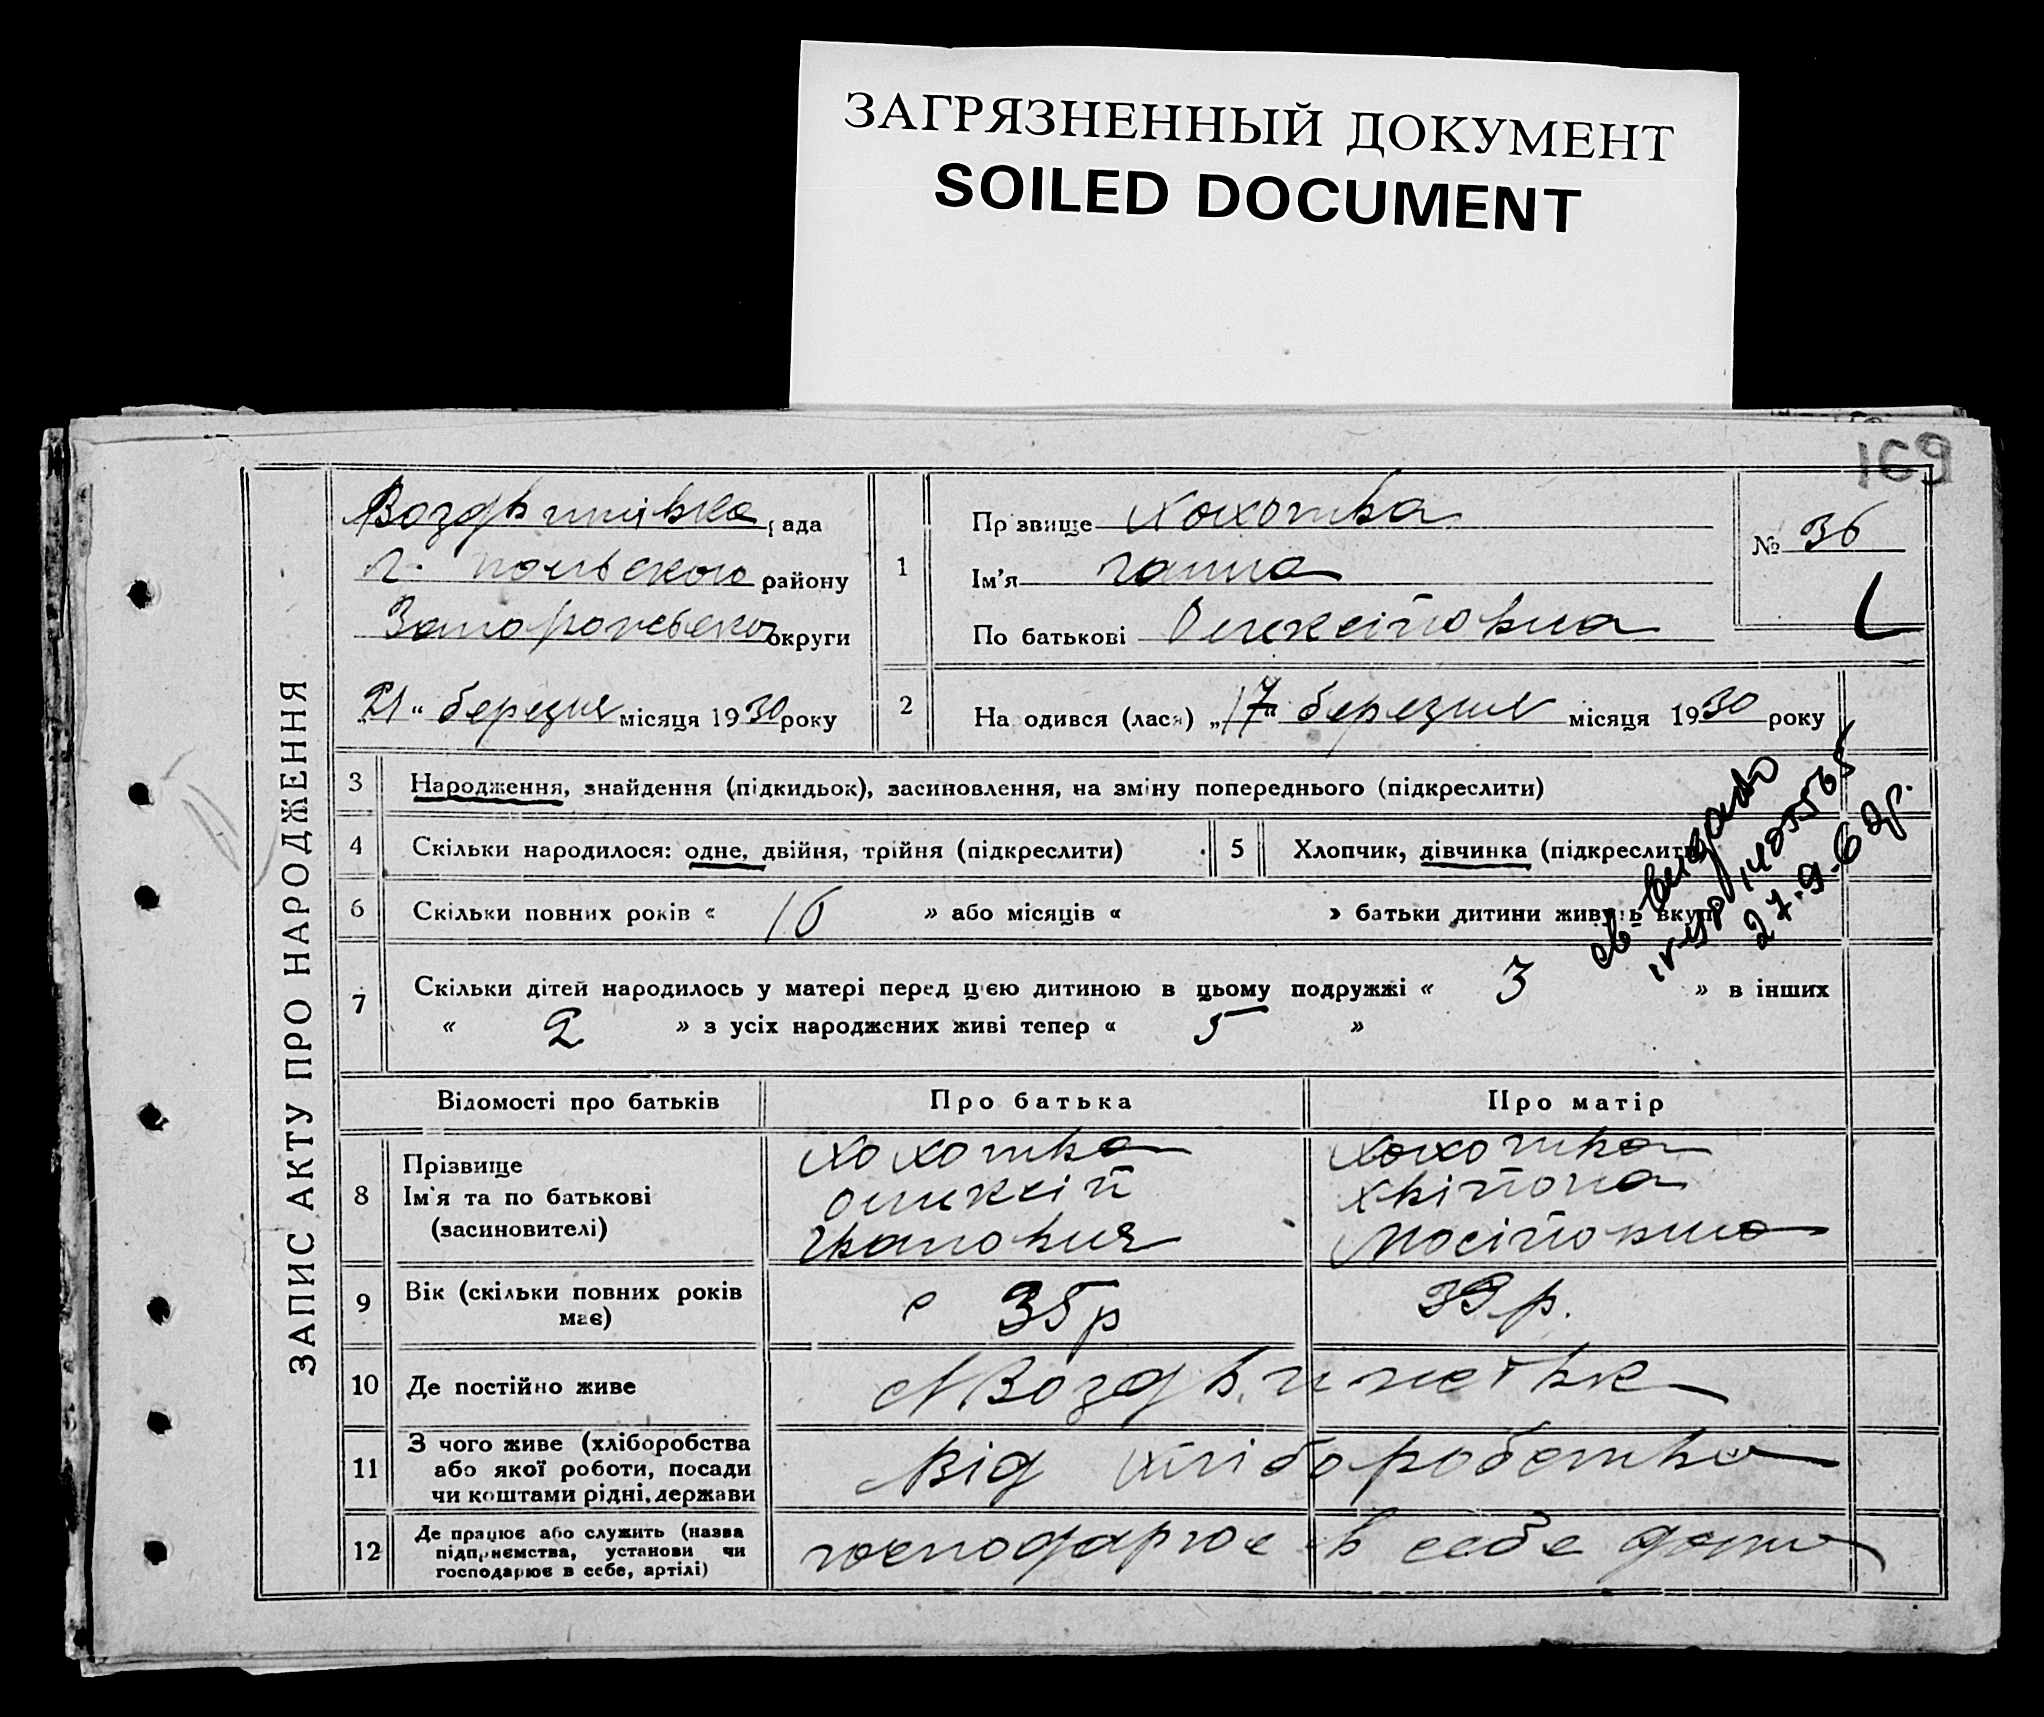 ЗАГРЯЗНЕННЫЙ ДОКУМЕНТ
SOILED DOCUMENT
169
ЗАПИС АКТУ ПРО НАРОДЖЕННЯ
Воздвишівка рада
Г. польского району
Запорожсько округи
21 " березня місяця 1930 року
1
Прізвище Хохотва
Ім'я Ганна
По батькові Олексіївна
№ 36
2
Народився (лася) „17" березня місяця 1930 року
3 Народження, знайдення (підкидьок), засиновлення, на зміну попереднього (підкреслити)
4 Скільки народилося: одне, двійня, трійня (підкреслити)
5 Хлопчик, дівчинка (підкреслити)
6 Скільки повних років « 16 » або місяців « » батьки дитини живуть вкупі
св. видано
27.9.62р.
7 Скільки дітей народилось у матері перед цією дитиною в цьому подружжі « 3 » в інших
« 2 » з усіх народжених живі тепер « 5 »
Відомості про батьків Про батька Про матір
8 Прізвище
Ім'я та по батькові
(засиновителі)
Хохотва
Олексій
Іванович
Хохотва
Хвійона
Мосійовна
9 Вік (скільки повних років
має)
35р
39р.
10 Де постійно живе
11 З чого живе (хліборобства
або якої роботи, посади
чи коштами рідні, держави
Від хліборобства
12 Де працює або служить (назва
підприємства, установи чи
господарює в себе, артілі)
господарює в себе дома